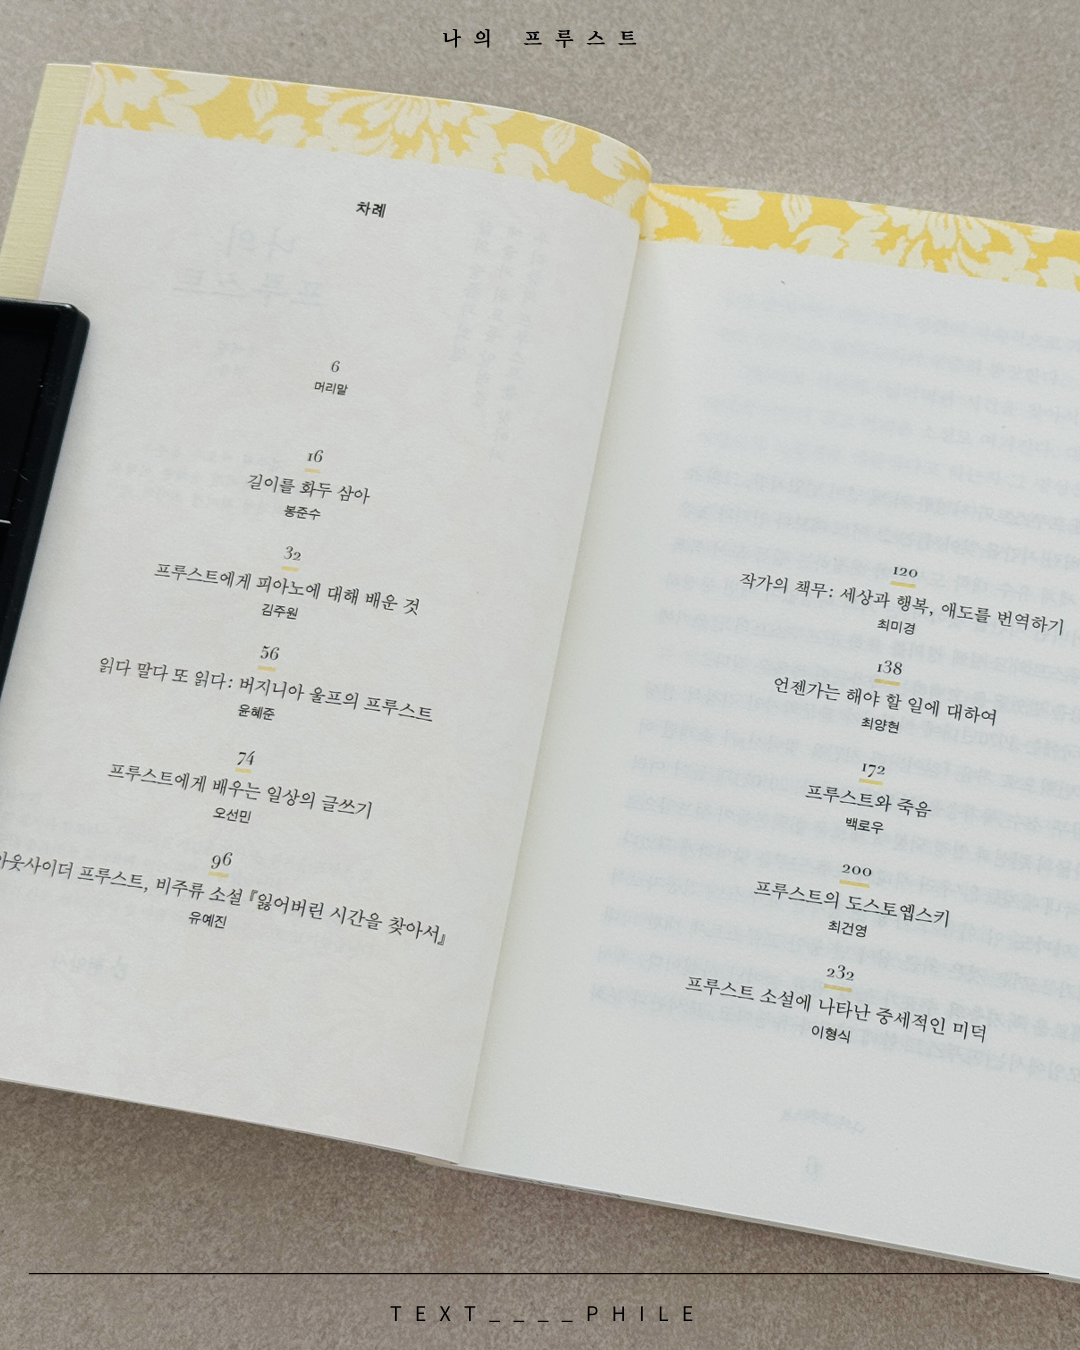 나의 프루스트
차례
6
머리말
16
길이를 화두 삼아
봉준수
32
프루스트에게 피아노에 대해 배운 것
김주원
56
읽다 말다 또 읽다: 버지니아 울프의 프루스트
윤혜준
74
프루스트에게 배우는 일상의 글쓰기
오선민
96
아웃사이더 프루스트, 비주류 소설 『잃어버린 시간을 찾아서』
유예진
120
작가의 책무: 세상과 행복, 애도를 번역하기
최미경
138
언젠가는 해야 할 일에 대하여
최양현
172
프루스트와 죽음
백로우
200
프루스트의 도스토옙스키
최건영
232
프루스트 소설에 나타난 중세적인 미덕
이형식
TEXT____PHILE